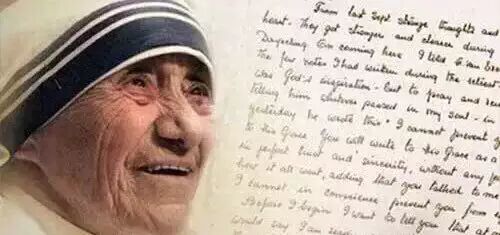 From last Sept. strange thoughts and
heart. They got stronger and clearer during
Darjeeling. On coming here I told
the few notes I had written during the retreat
was God's inspiration - but to pray and
telling him whatever passed in my soul - in
yesterday he wrote this "I cannot prevent y
to His Grace. You will write to His Grace as a
in perfect trust and sincerity, without any
how it all went, adding that you talked to m
I cannot in conscience prevent you from
Before I begin I want to tell you that at
would say I am read